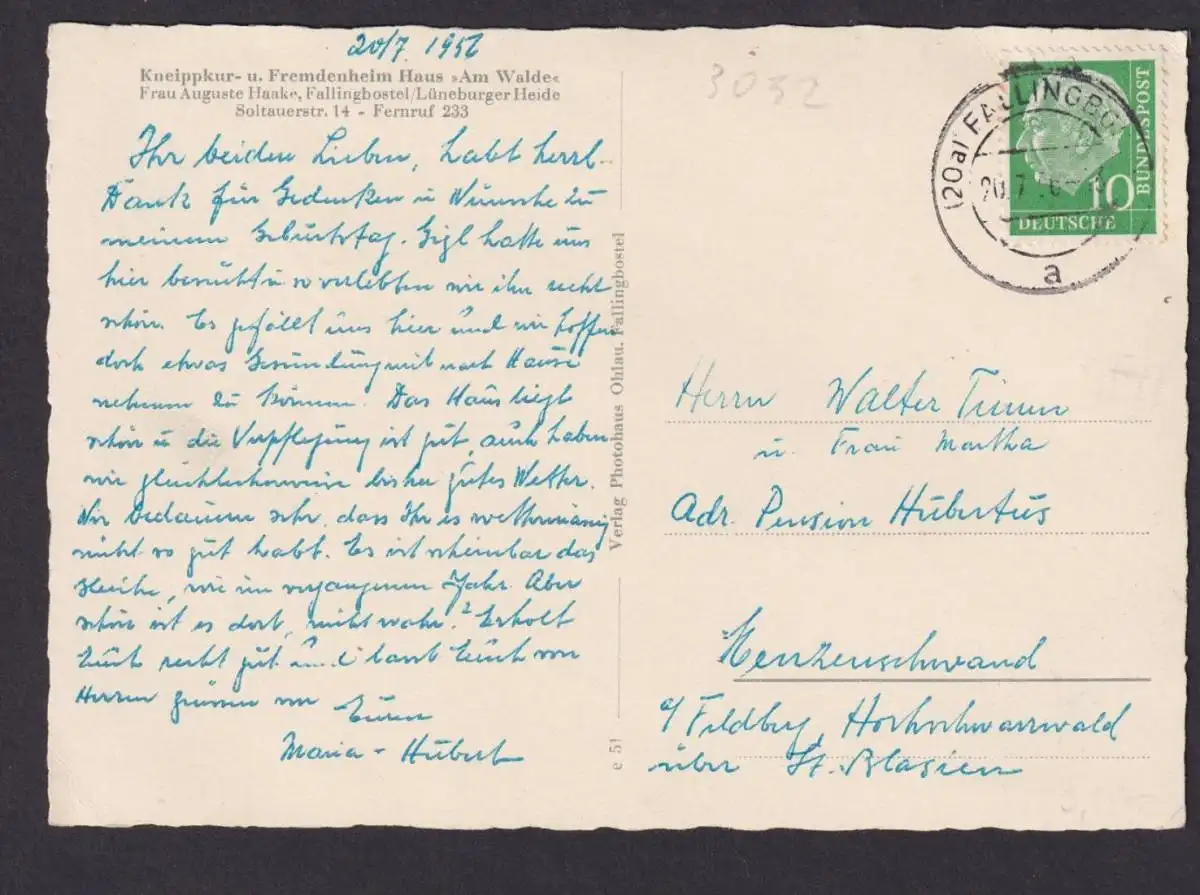 20/7. 1956
Kneippkur- u. Fremdenheim Haus »Am Walde«
Frau Auguste Haake, Fallingbostel/Lüneburger Heide
Soltauerstr. 14 - Fernruf 233
Ihr beiden Lieben, habt herzl.
Dank für Gedenken u Wünsche zu
meinem Geburtstag. Gigl hatte uns
hier besucht u so verlebten wir ihn recht
schön. Es gefällt uns hier und wir hoffen
doch etwas Gesundung mit nach Hause
nehmen zu können. Das Haus liegt
schön u die Verpflegung ist gut, auch haben
wir glücklicherweise bisher gutes Wetter.
Wir bedauern sehr, dass Ihr es wettermässig
nicht so gut habt. Es ist scheinbar das
gleiche, wie im vergangenen Jahr. Aber
schön ist es dort, nicht wahr? Erholt
Euch recht gut und lasst Euch von
Herzen grüssen von
Euren
Maria - Hubert
Verlag Photohaus Ohlau. Fallingbostel
e 51
3032
(20a) FALLINGBO
20.7. 6
a
10
DEUTSCHE
BUNDESPOST
Herrn Walter Timm
u. Frau Martha
Adr. Pension Hubertus
Menzenschwand
a/ Feldberg, Hochschwarzwald
über St. Blasien